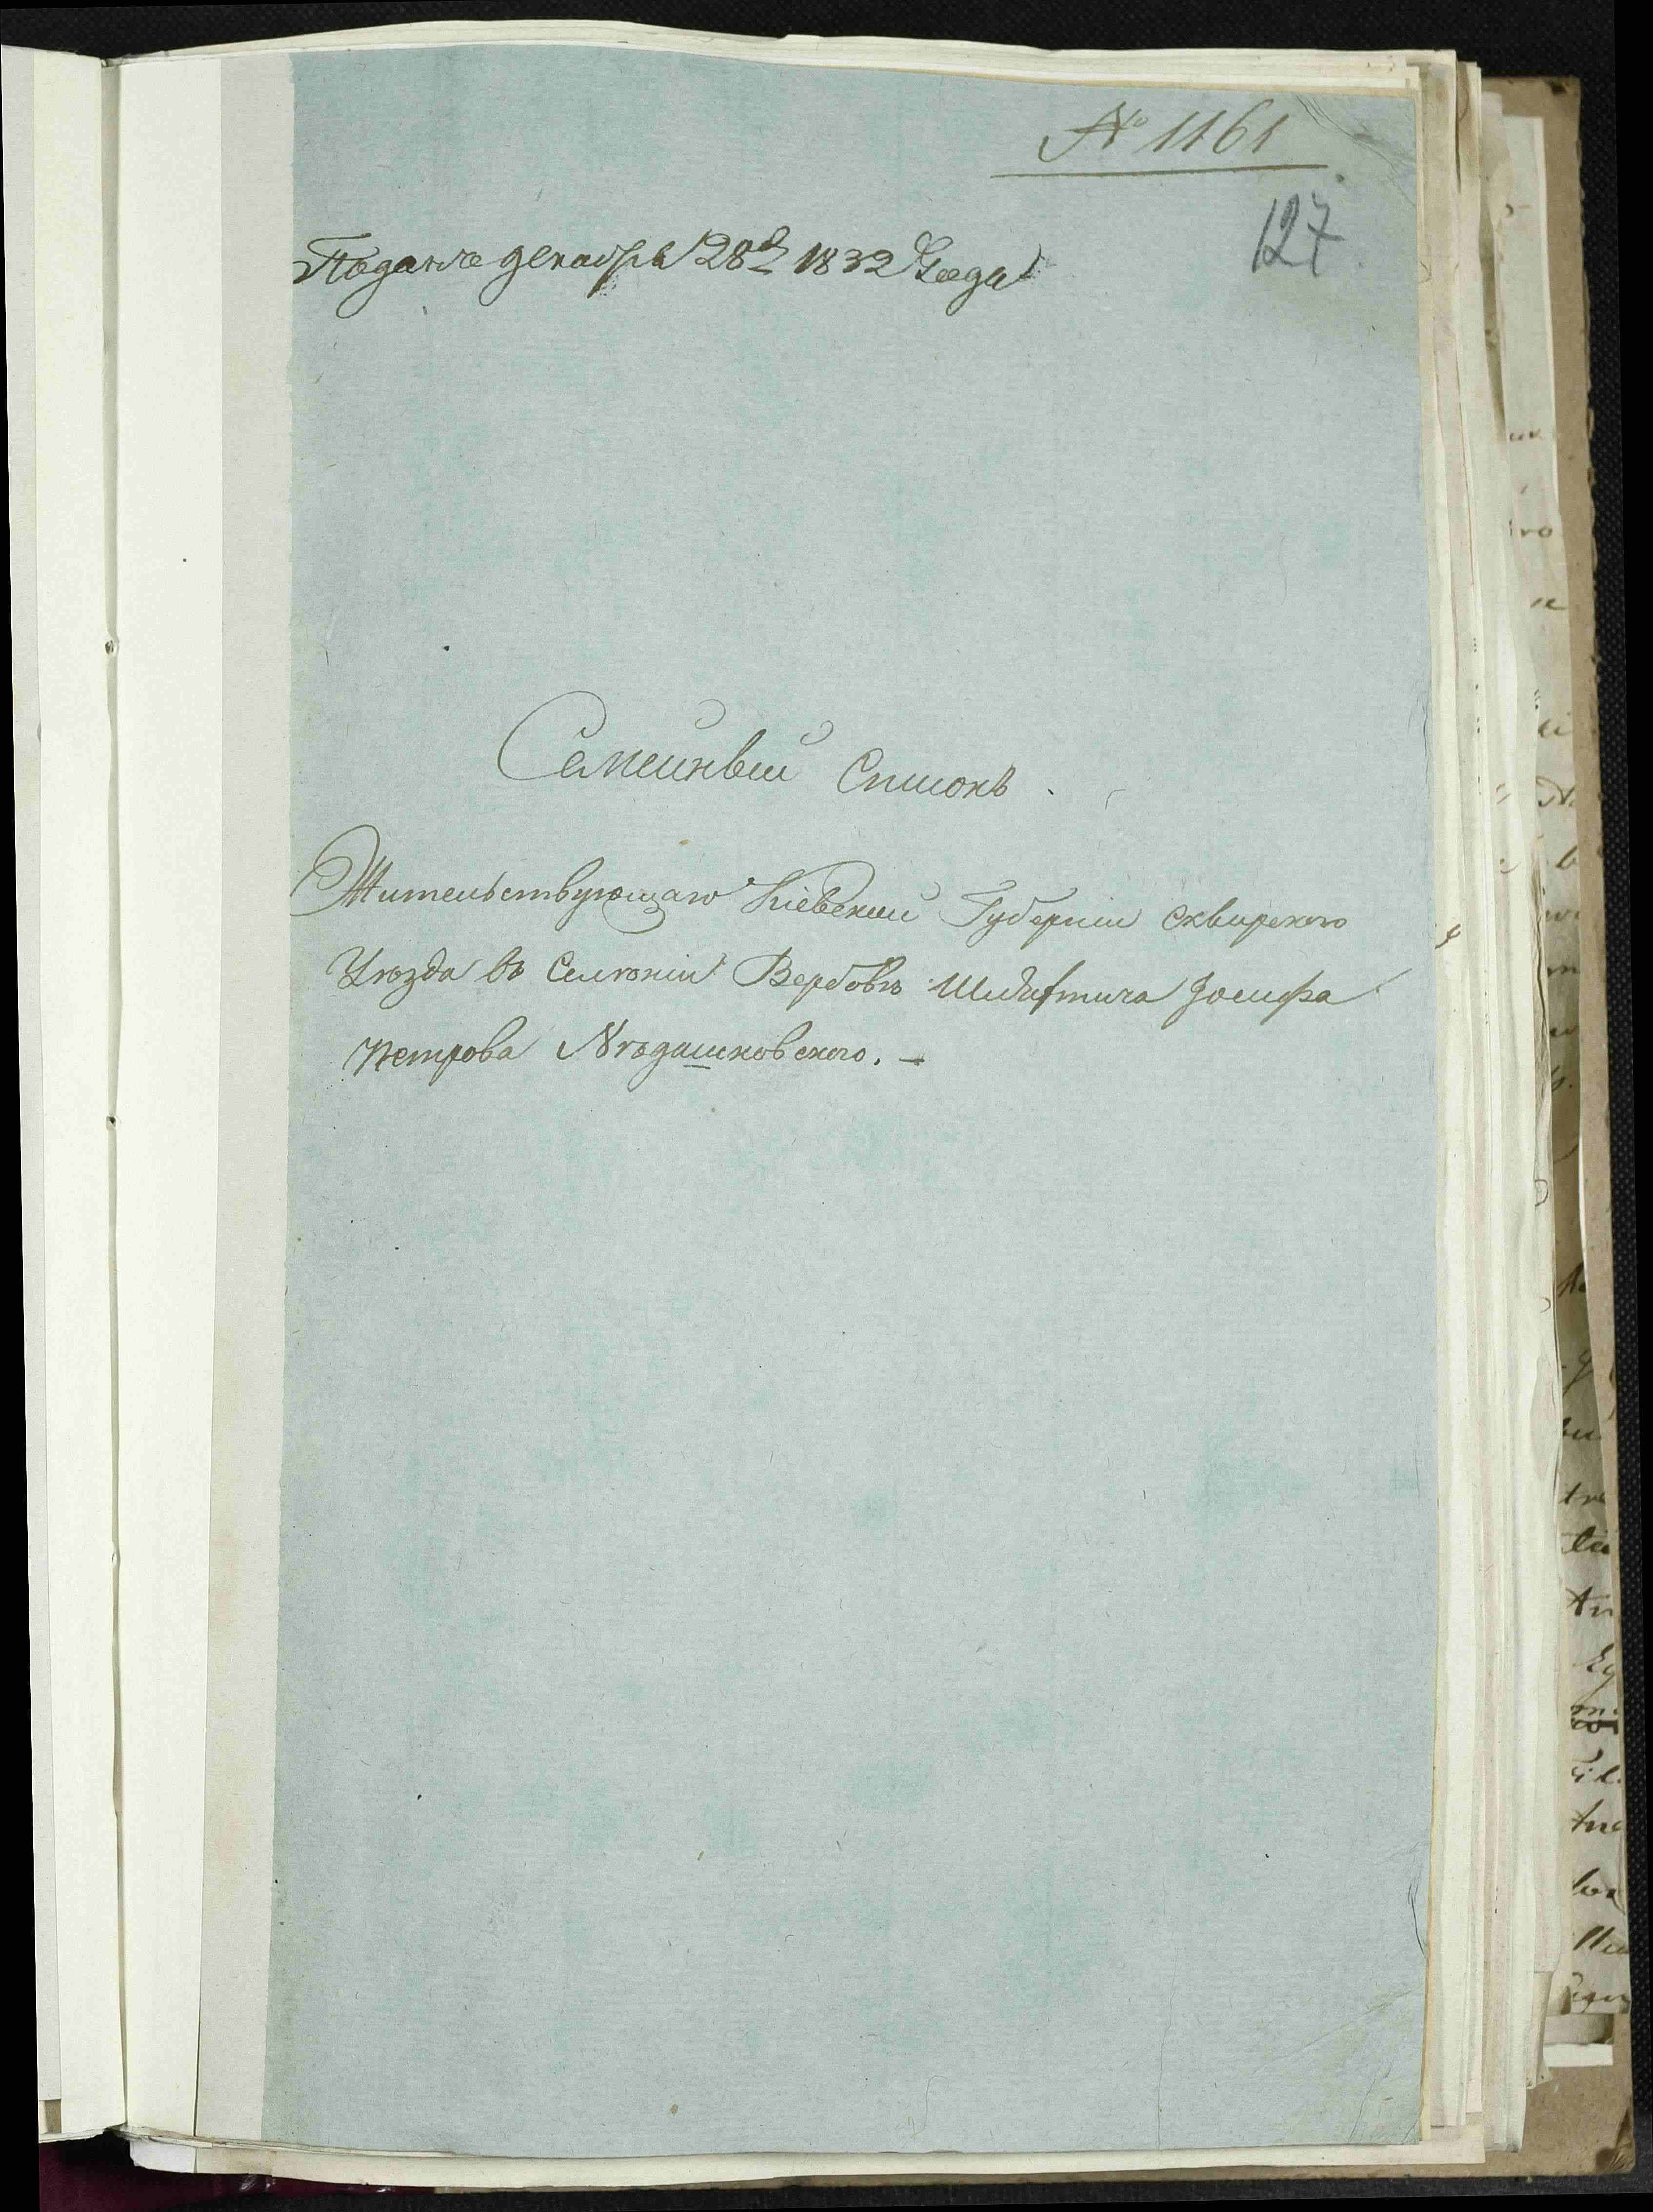 № 1161
127
Подано декабря 28д 1832 Года
Семейный Списокъ.
Жительствующаго Кіевской Губерніи Сквирского
Уѣзда въ Селѣніи Вербовѣ Шляхтича Іосифа
Петрова Мѣдашковского. —